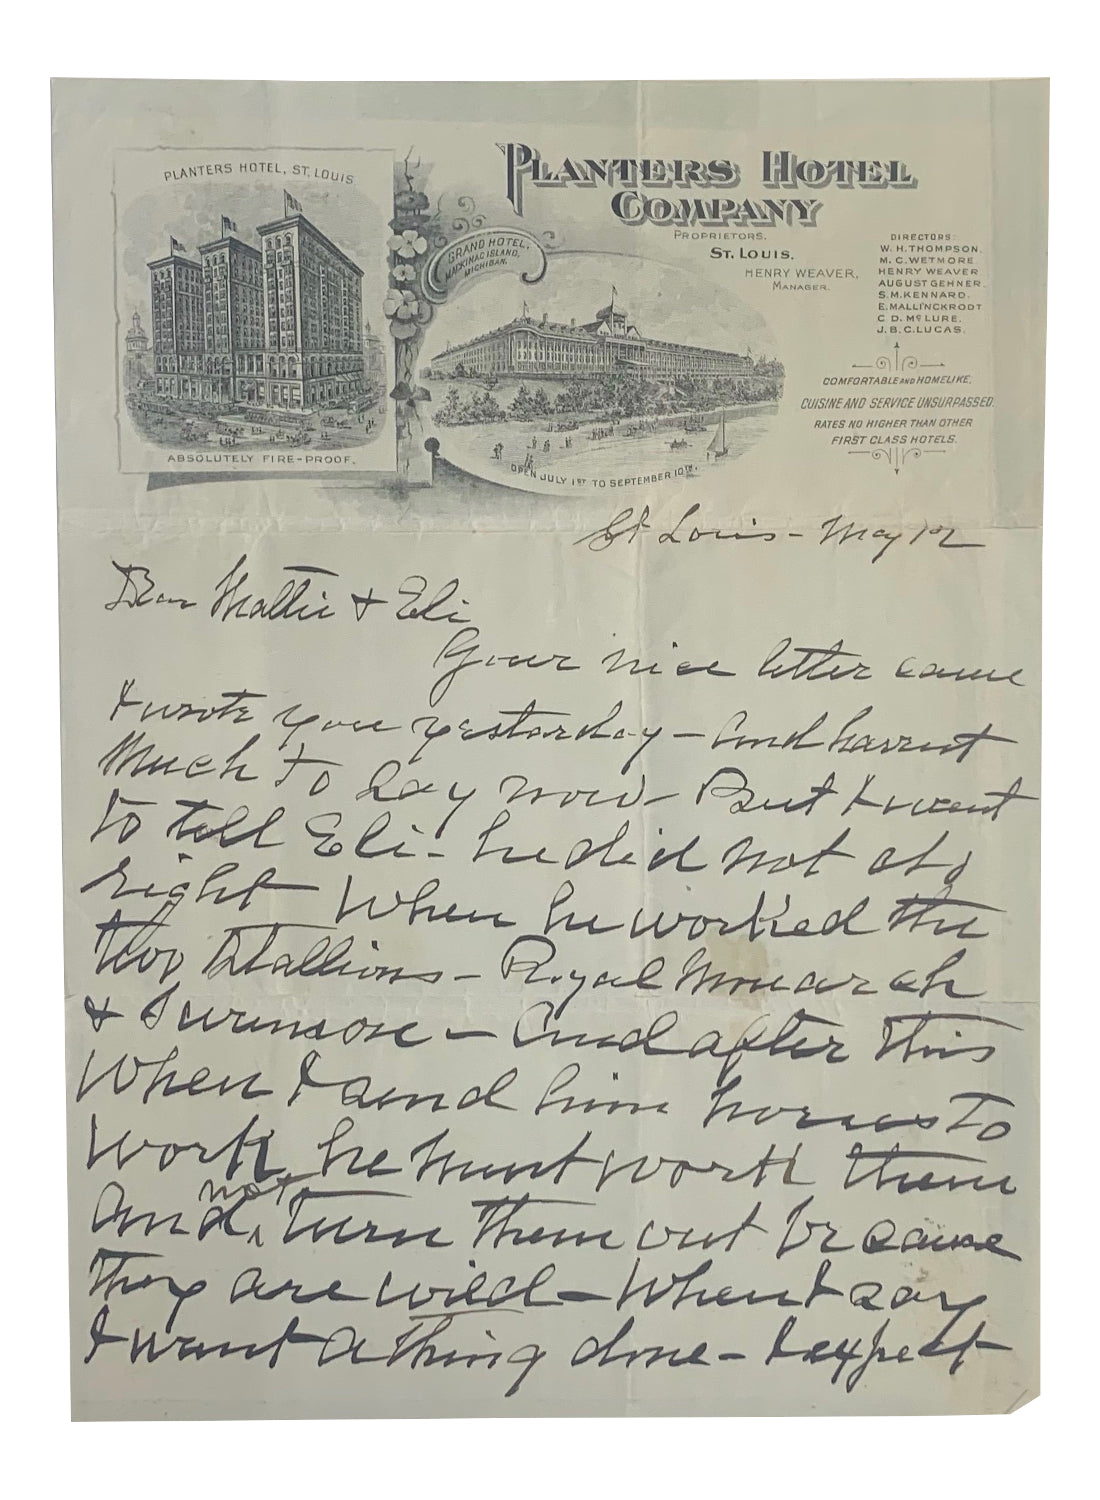 PLANTERS HOTEL, ST. LOUIS
ABSOLUTELY FIRE-PROOF.
GRAND HOTEL,
MACKINAC ISLAND,
MICHIGAN.
OPEN JULY 1ST TO SEPTEMBER 10TH.
PLANTERS HOTEL
COMPANY
PROPRIETORS.
ST. LOUIS.
HENRY WEAVER,
MANAGER.
DIRECTORS:
W. H. THOMPSON.
M. C. WETMORE.
HENRY WEAVER
AUGUST GEHNER.
S. M. KENNARD.
E. MALLINCKRODT
C D. McLURE.
J. B. C. LUCAS.
COMFORTABLE AND HOMELIKE.
CUISINE AND SERVICE UNSURPASSED.
RATES NO HIGHER THAN OTHER
FIRST CLASS HOTELS.
St Louis - May 12
Dear Mattie & Eli
Your nice letter came
I wrote you yesterday - And havent
Much to say now - But I want
to tell Eli - he did not do
right When he worked the
two Stallions - Royal Monarch
& Swanson - And after this
When I send him horses to
Work he must work them
And not turn them out because
they are wild - When I say
I want a thing done - I expect